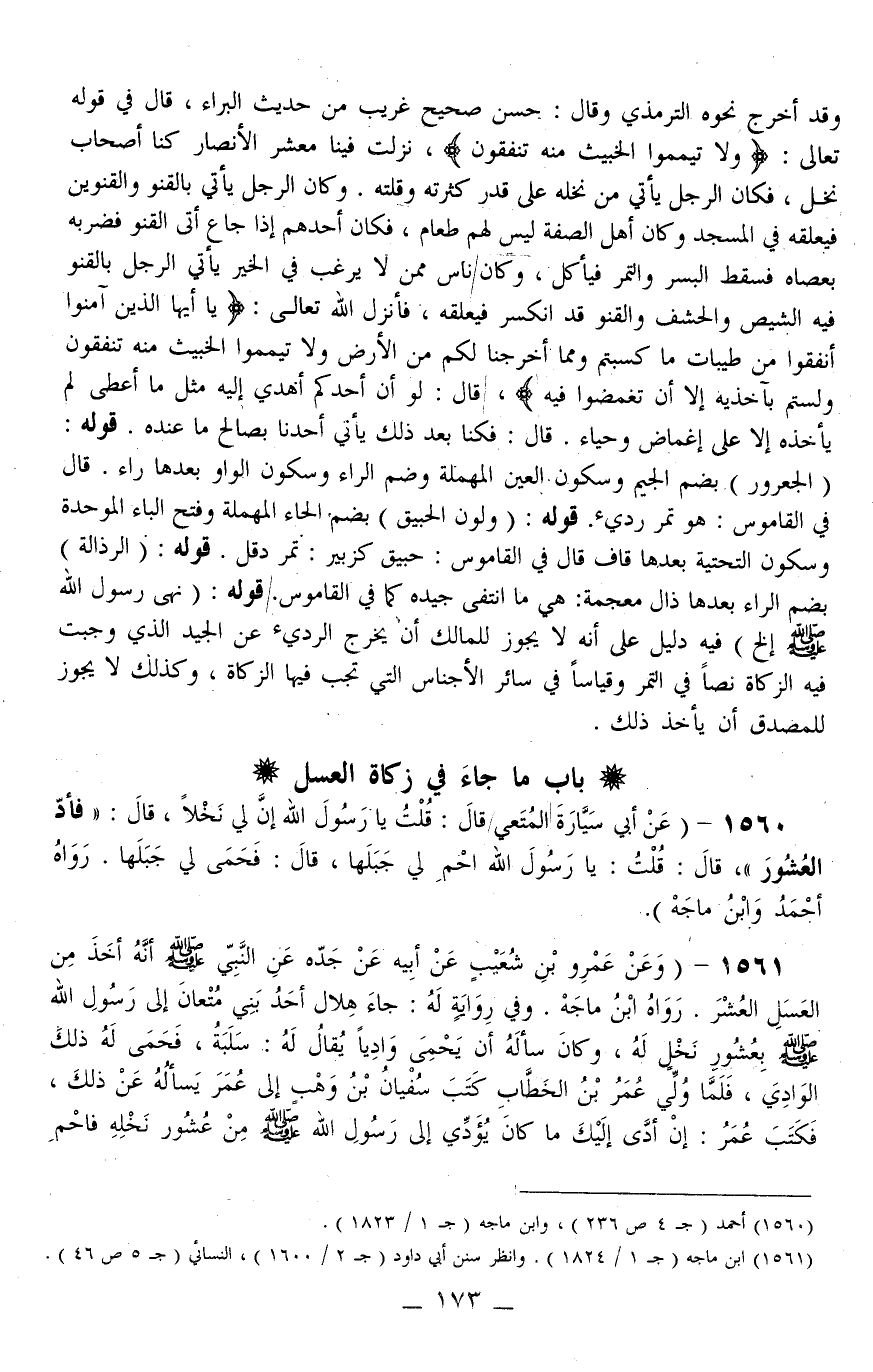 وقد أخرج نحوه الترمذي وقال : حسن صحيح غريب من حديث البراء ، قال في قوله
تعالى : ﴿ ولا تيمموا الخبيث منه تنفقون ﴾ ، نزلت فينا معشر الأنصار كنا أصحاب
نخل ، فكان الرجل يأتي من نخله على قدر كثرته وقلته . وكان الرجل يأتي بالقنو والقنوين
فيعلقه في المسجد وكان أهل الصفة ليس لهم طعام ، فكان أحدهم إذا جاع أتى القنو فضربه
بعصاه فسقط البسر والتمر فيأكل ، وكان ناس ممن لا يرغب في الخير يأتي الرجل بالقنو
فيه الشيص والحشف والقنو قد انكسر فيعلقه ، فأنزل الله تعالى : ﴿ يا أيها الذين آمنوا
أنفقوا من طيبات ما كسبتم ومما أخرجنا لكم من الأرض ولا تيمموا الخبيث منه تنفقون
ولستم بآخذيه إلا أن تغمضوا فيه ﴾ ، قال : لو أن أحدكم أهدي إليه مثل ما أعطى لم
يأخذه إلا على إغماض وحياء . قال : فكنا بعد ذلك يأتي أحدنا بصالح ما عنده . قوله :
( الجعرور ) بضم الجيم وسكون العين المهملة وضم الراء وسكون الواو بعدها راء . قال
في القاموس : هو تمر رديء. قوله : ( ولون الحبيق ) بضم الحاء المهملة وفتح الباء الموحدة
وسكون التحتية بعدها قاف قال في القاموس : حبيق كزبير : تمر دقل . قوله : ( الرذالة )
بضم الراء بعدها ذال معجمة: هي ما انتفى جيده كما في القاموس. قوله : ( نهى رسول الله
ﷺ إلخ ) فيه دليل على أنه لا يجوز للمالك أن يخرج الرديء عن الجيد الذي وجبت
فيه الزكاة نصاً في التمر وقياساً في سائر الأجناس التي تجب فيها الزكاة ، وكذلك لا يجوز
للمصدق أن يأخذ ذلك .
باب ما جاءَ في زكاة العسل
١٥٦٠ - ( عَنْ أبي سَيَّارَةَ المُتَعي قالَ : قُلْتُ يا رَسُولَ الله إنَّ لي نَخْلاً ، قالَ : « فأدّ
العُشُورَ »، قالَ : قُلْتُ : يا رَسُولَ الله احْمِ لي جَبَلَها ، قالَ : فَحَمَى لي جَبَلَها . رَوَاهُ
أحْمَدُ وَابْنُ ماجَهْ ).
١٥٦١ - ( وَعَنْ عَمْرِو بْنِ شُعَيْبٍ عَنْ أبيه عَنْ جَدّه عَنِ النَّبيّ ﷺ أنَّهُ أخَذَ مِن
العَسَلِ العُشْرَ . رَوَاهُ ابْنُ ماجَهْ . وفي رِوَايَةٍ لَهُ : جاءَ هِلال أحَدُ بَنِي مُتْعانَ إلى رَسُولِ الله
ﷺ بِعُشُورِ نَخْلٍ لَهُ ، وكانَ سألَهُ أن يَحْمِىَ وَادِياً يُقالُ لَهُ : سَلَبَةُ ، فَحَمَى لَهُ ذلكَ
الوَادِيَ ، فَلَمَّا وُلِّي عُمَرُ بْنُ الخَطَّابِ كَتَبَ سُفْيانُ بْنُ وَهْبٍ إلى عُمَرَ يَسألُهُ عَنْ ذلكَ ،
فَكَتَبَ عُمَرُ : إنْ أدَّى إلَيْكَ ما كانَ يُؤَدِّي إلى رَسُولِ الله ﷺ مِنْ عُشُور نَخْلِهِ فاحْمِ
(١٥٦٠) أحمد ( جـ ٤ ص ٢٣٦ ) ، وابن ماجه ( جـ ١ / ١٨٢٣ ) .
(١٥٦١) ابن ماجه ( جـ ١ / ١٨٢٤ ) . وانظر سنن أبي داود ( جـ ٢ / ١٦٠٠ ) ، النسائي ( جـ ٥ ص ٤٦ ) .
_ ١٧٣ _